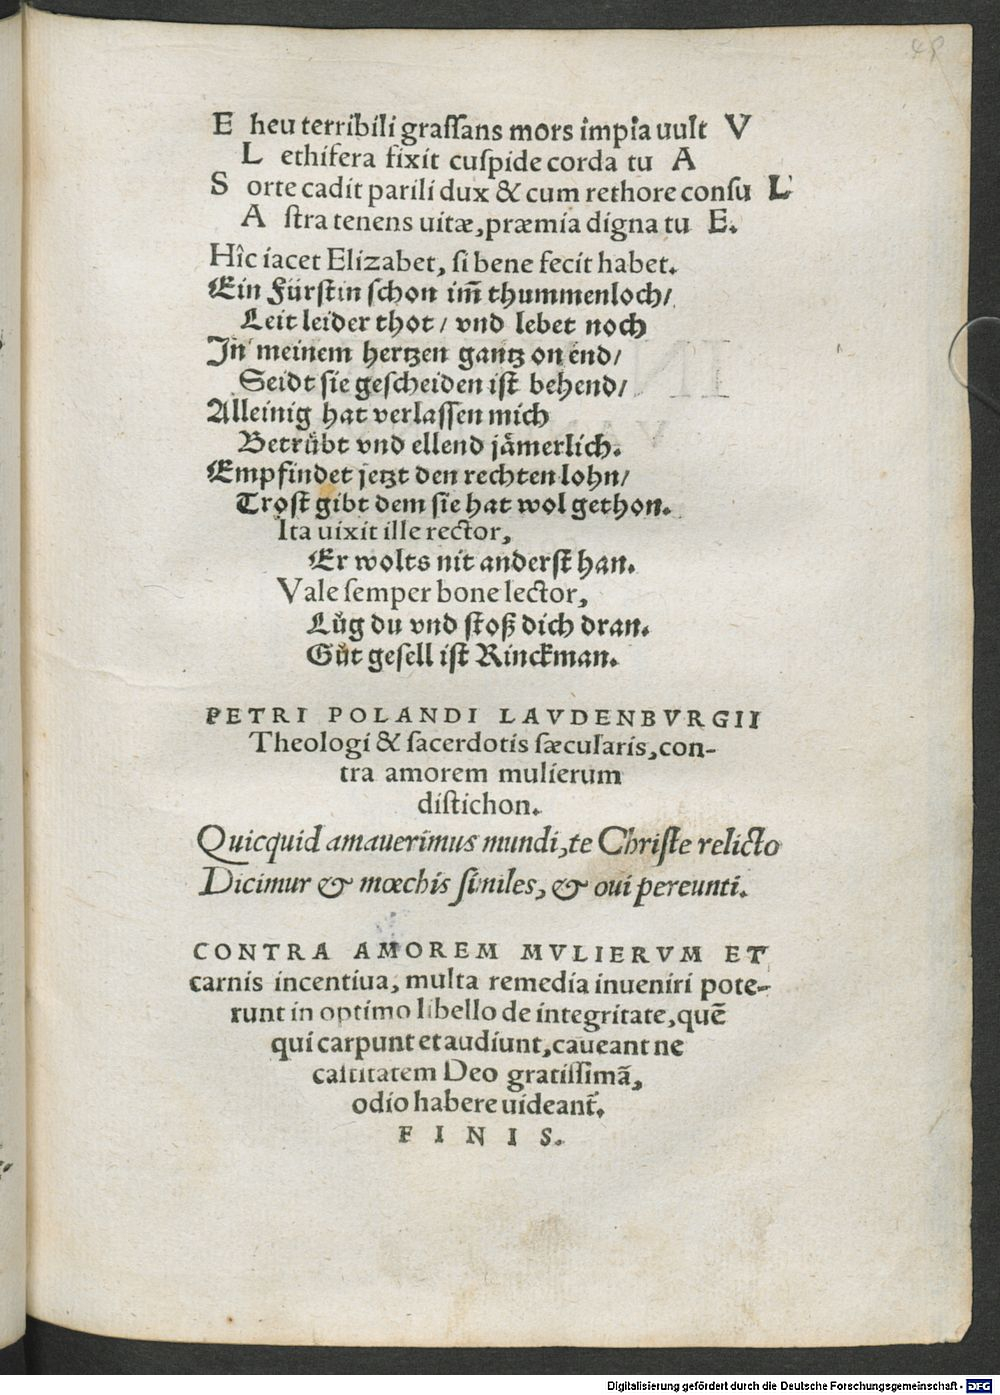 48
E heu terribili graſſans mors impia uult V
L ethifera fixit cuſpide corda tu A
S orte cadit parili dux & cum rethore conſu L
A ſtra tenens uitæ, præmia digna tu E.
Hîc iacet Elizabet, ſi bene fecit habet.
Ein Fürſtin ſchon im̄ thummenloch/
Leit leider thot/ vnd lebet noch
In meinem hertzen gantz on end/
Seidt ſie geſcheiden iſt behend/
Alleinig hat verlaſſen mich
Betrübt vnd ellend jämerlich.
Empfindet jetzt den rechten lohn/
Troſt gibt dem ſie hat wol gethon.
Ita uixit ille rector,
Er wolts nit anderſt han.
Vale ſemper bone lector,
Lůg du vnd ſtoß dich dran.
Gůt geſell iſt Rinckman.
PETRI POLANDI LAVDENBVRGII
Theologi & ſacerdotis ſæcularis, con-
tra amorem mulierum
diſtichon.
Quicquid amauerimus mundi, te Chriſte relicto
Dicimur & mœchis ſimiles, & oui pereunti.
CONTRA AMOREM MVLIERVM ET
carnis incentiua, multa remedia inueniri pote-
runt in optimo libello de integritate, quē
qui carpunt et audiunt, caueant ne
caſtitatem Deo gratiſſimã,
odio habere uideant᷑.
FINIS.
Digitalisierung gefördert durch die Deutsche Forschungsgemeinschaft - DFG